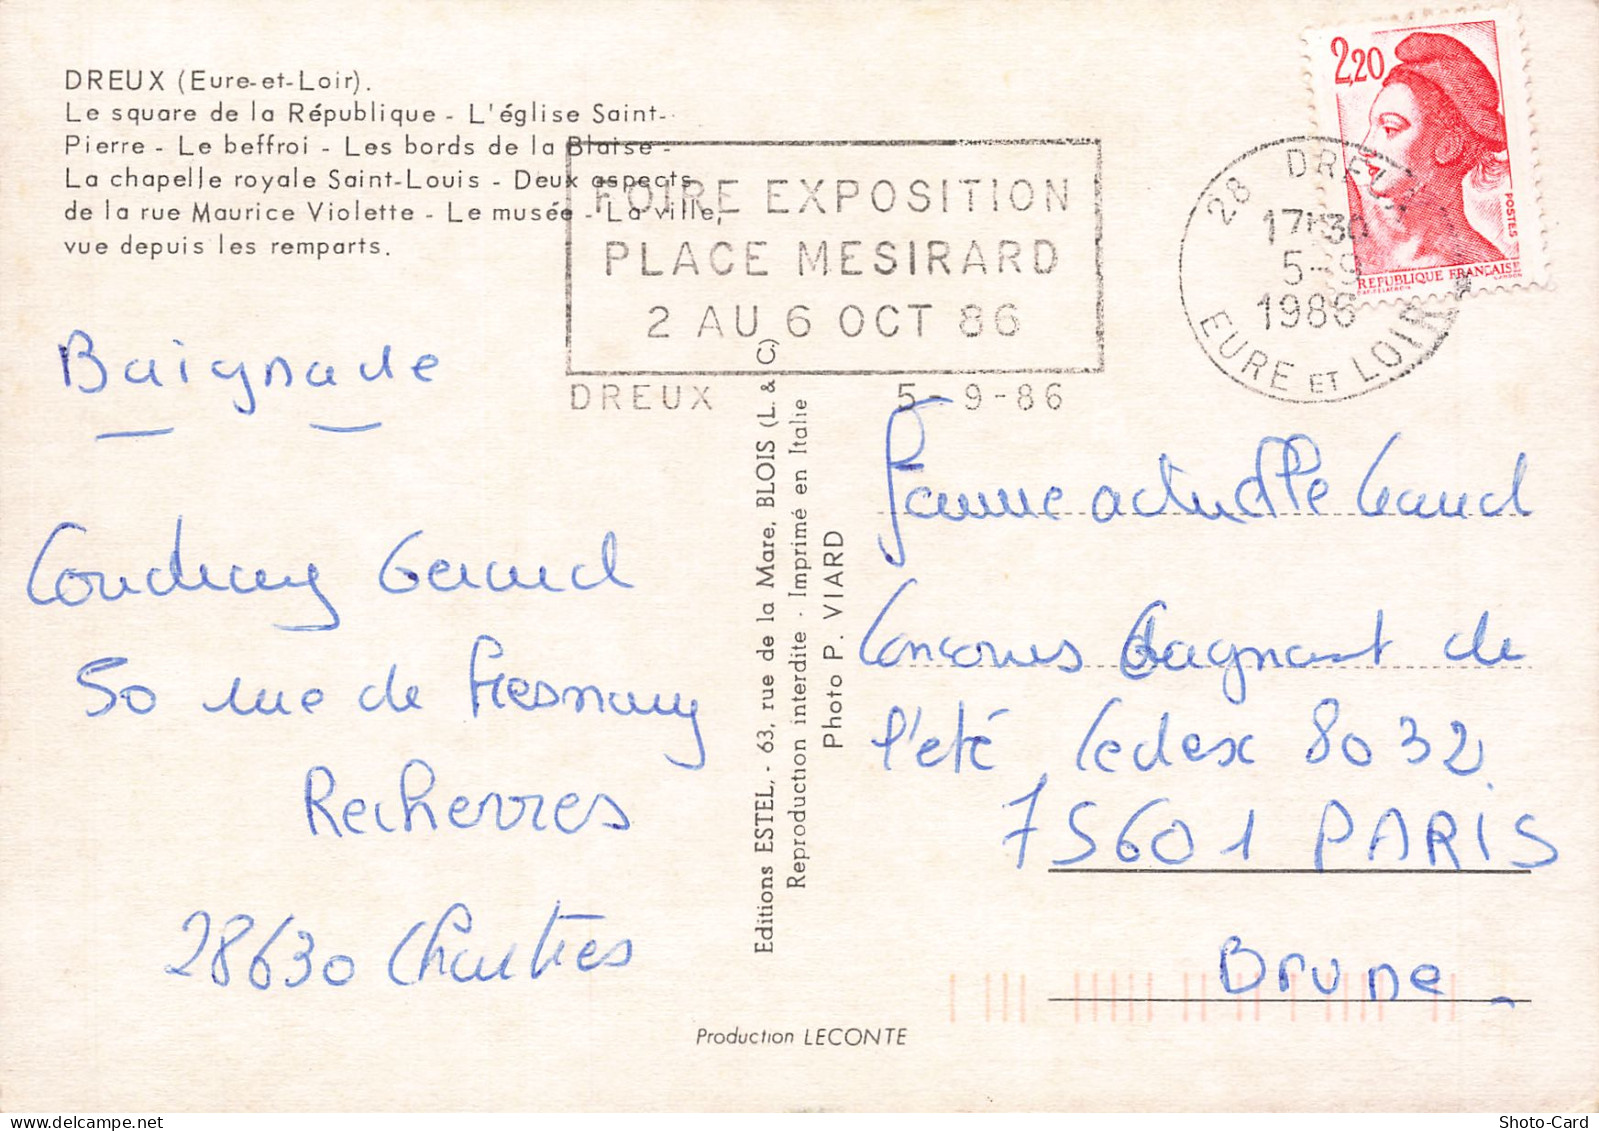 DREUX (Eure-et-Loir).
Le square de la République - L'église Saint-
Pierre - Le beffroi - Les bords de la Blaise -
La chapelle royale Saint-Louis - Deux aspects
de la rue Maurice Violette - Le musée - La ville,
vue depuis les remparts.
FOIRE EXPOSITION
PLACE MESIRARD
2 AU 6 OCT 86
DREUX 5-9-86
28 DREUX
17H30
5-9
1986
EURE ET LOIR
2,20
POSTES
REPUBLIQUE FRANÇAISE
Baignade
Coudray Gérard
50 rue de Fresnay
Recherres
28630 Chartres
Editions ESTEL, - 63, rue de la Mare, BLOIS (L. & C.)
Reproduction interdite - Imprimé en Italie
Photo P. VIARD
Femme actuelle Grand
Concours Gagnant de
l'été Cedex 8032
75601 PARIS
Brune
Production LECONTE
Shoto-Card